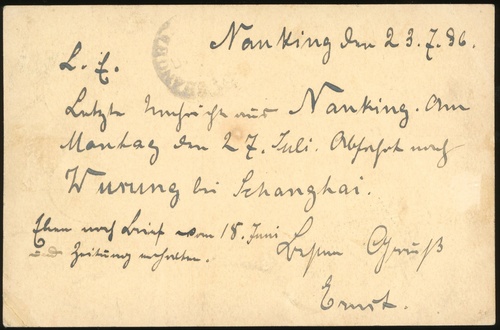 Nanking den 23.7.36.
L. E.
Letzte Nachricht aus Nanking. Am
Montag den 27. Juli. Abfahrt nach
Wusung bei Schanghai.
Eben noch Brief vom 18. Juni
Zeitung erhalten.
Besten Gruß
Ernst.